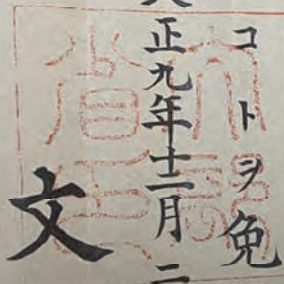 コトヲ免
正九年十二月二
文